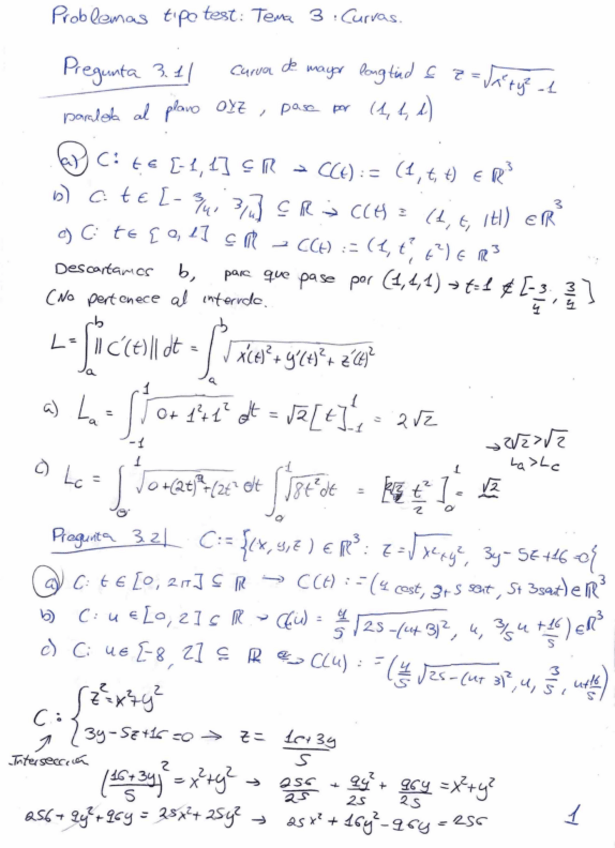 Problemas tipo test: Tema 3: Curvas.
Pregunta 3.1| Curva de mayor longitud ⊆ z = √x²+y²-1
paralela al plano OYZ, pasa por (1, 1, 1)
a) C: t ∈ [-1, 1] ⊆ ℝ → C(t) := (1, t, t) ∈ ℝ³
b) C: t ∈ [-3/4, 3/4] ⊆ ℝ → C(t) = (1, t, |t|) ∈ ℝ³
c) C: t ∈ [0, 1] ⊆ ℝ → C(t) := (1, t², t²) ∈ ℝ³
Descartamos b, para que pase por (1,1,1) → t=1 ∉ [-3/4, 3/4]
(No pertenece al intervalo.
L = ∫_a^b ||C'(t)|| dt = ∫_a^b √x'(t)² + y'(t)² + z'(t)²
a) L_a = ∫_-1^1 √0+1²+1² dt = √2 [t]_-1^1 = 2√2
→ 2√2 > √2
L_a > L_c
c) L_c = ∫_0^1 √0+(2t)²+(2t² dt ∫_0^1 √8t² dt = [ t²/2 ]_0^1 = √2
Pregunta 3.2| C := {(x, y, z) ∈ ℝ³: z = √x²+y², 3y-5z+16=0}
a) C: t ∈ [0, 2π] ⊆ ℝ → C(t) := (4 cost, 3+5 sent, 5+3sent) ∈ ℝ³
b) C: u ∈ [0, 2] ⊆ ℝ → C(u) = 4/5 √25-(u+3)², u, 3/5 u + 16/5) ∈ ℝ³
c) C: u ∈ [-8, 2] ⊆ ℝ → C(u) := (4/5 √25-(u+3)², u, 3/5, u+16/5)
C: { z² = x²+y²
3y-5z+16=0 → z = 16+3y/5
Intersección
(16+3y/5)² = x²+y² → 256/25 + 9y²/25 + 96y/25 = x²+y²
256 + 9y² + 96y = 25x² + 25y² → 25x² + 16y² - 96y = 256
1